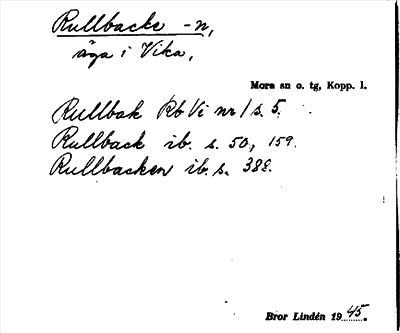 Rullbacke -n,
äga i Vika,
Mora sn o. tg, Kopp. l.
Rullbak Rb Vi nr 1 s. 5.
Rullback ib. s. 50, 159.
Rullbacken ib. s. 388.
Bror Lindén 1945.